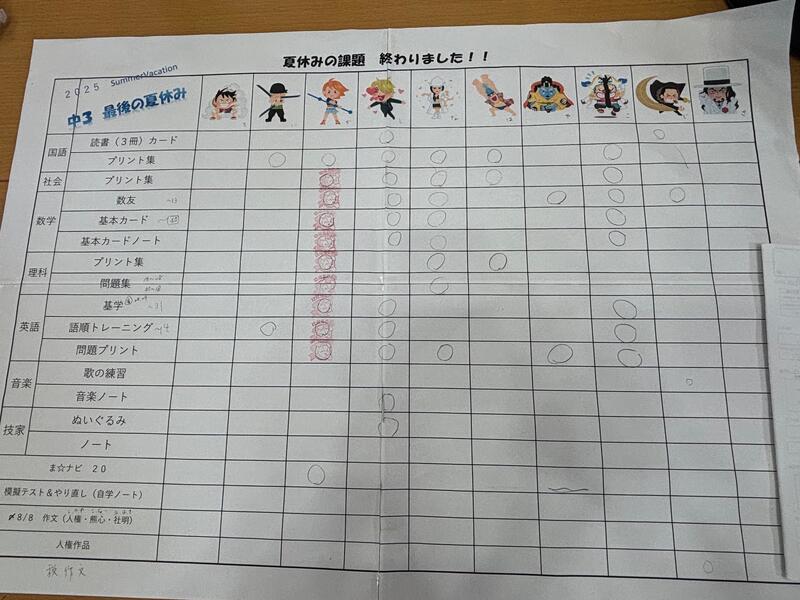 夏休みの課題 終わりました!!
2025 SummerVacation
中3 最後の夏休み
国語
読書(3冊)カード
プリント集
社会
プリント集
数学
数友 ~13
基本カード
基本カードノート
理科
プリント集
問題集
英語
基学 ~31
語順トレーニング ~14
問題プリント
音楽
歌の練習
音楽ノート
技家
ぬいぐるみ
ノート
ま☆ナビ 20
模擬テスト&やり直し(自学ノート)
〆8/8 作文(人権・熊心・社明)
人権作品
税作文